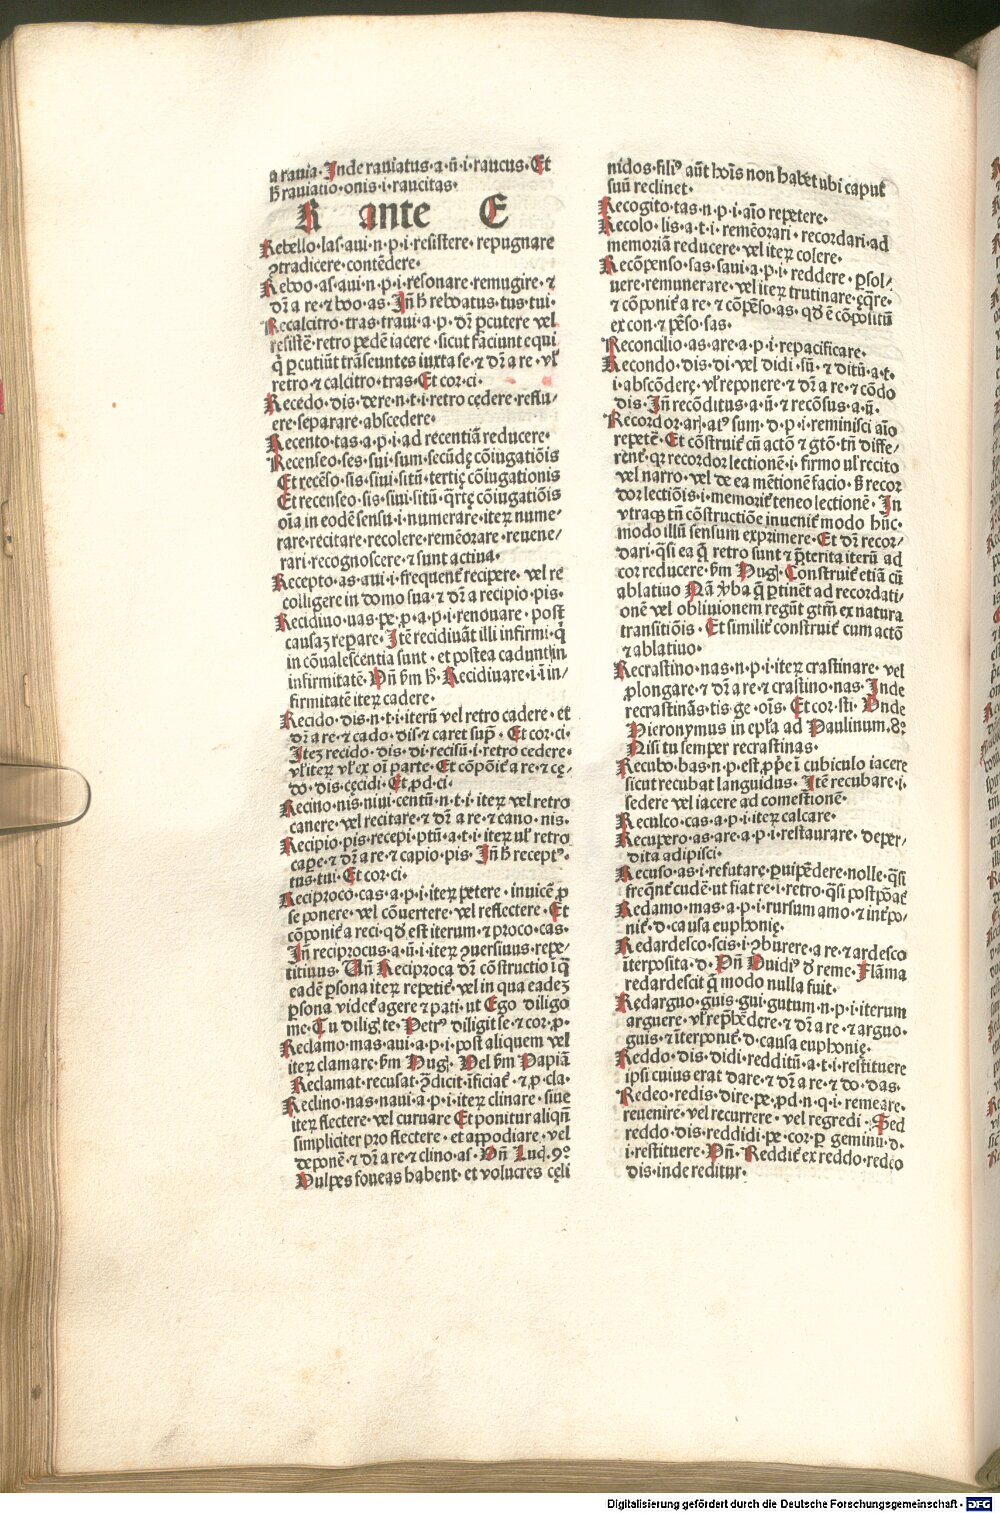 a rauia· Inde rauiatus·a·ū·i·raucus· Et
h̄ rauiatio·onis·i·raucitas·
R ante E
Rebello·las·aui·n·p·i·resistere· repugnare
ꝯtradicere·contēdere·
Reboo·as·aui·n·p·i·resonare·remugire· ⁊
dr̄ a re·⁊ boo·as· Jn̄ h̄ reboatus·tus·tui·
Recalcitro·tras·traui·a·p· dr̄ ꝑcutere vel
resistē·retro pedē iacere·sicut faciunt equi
q̄ ꝑcutiūt trāseuntes iuxta se·⁊ dr̄ a re·vl̓
retro·⁊ calcitro·tras· Et cor·ci·
Recedo·dis·dere·n·t·i·retro cędere·reflu/
ere·separare·abscedere·
Recento·tas·a·p·i·ad recentiā reducere·
Recenseo·ses·sui·sum·secūdę cōiugatiōis
Et recēso·sis·siui·sitū·tertię cōiugationis
Et recenseo·sis·siui·sitū·qrtę cōiugatiōis
oīa in eodē sensu·i·numerare·iteꝝ nume/
rare·recitare·recolere·remēorare·reuene/
rari·recognoscere·⁊ sunt actiua·
Recepto·as·aui·i·frequent̓ recipere· vel re
colligere in domo sua·⁊ dr̄ a recipio·pis·
Recidiuo·uas·ꝑe·ꝓ·a·p·i·renouare· post
causaꝫ reꝑare· Jtē recidiuāt illi infirmi·q̄
in cōualescentia sunt·et postea cadunt in
infirmitatē· Vn̄ ẜm h̄· Recidiuare·i·in/
firmitatē iteꝝ cadere·
Recido·dis·n·t·i·iterū vel retro cadere· et
dr̄ a re·⁊ cado·dis·⁊ caret sup̄· Et cor·ci·
Jteꝫ recido·dis·di·recisū·i·retro cedere·
vl̓ iteꝝ vl̓ ex oī parte· Et cōpōit̓ a re·⁊ cę/
do·dis·cęcidi· Et ꝓd·ci·
Recino·nis·niui·centū·n·t·i·iteꝝ vel retro
canere·vel recitare·⁊ dr̄ a re·⁊ cano·nis·
Recipio·pis·recepi·ptū·a·t·i·iteꝝ ul̓ retro
caꝑe·⁊ dr̄ a re·⁊ capio·pis· Jn̄ h̄ receptꝰ·
tus·tui· Et cor·ci·
Reciproco·cas·a·p·i·iteꝝ petere· inuicē ꝓ
se ponere·vel cōuertere·vel reflectere· Et
cōponit̓ a reci·qd̓ est iterum·⁊ proco·cas·
Jn̄ reciprocus·a·ū·i·iteꝝ ꝯuersiuus·repe/
titiuus· Un̄ Reciproca dr̄ cōstructio ī q̄
eadē ꝑsona iteꝝ repetit̓·vel in qua eadeꝫ
ꝑsona videt̓ agere ⁊ pati·ut Ego diligo
me· Tu diligis te· Petrꝰ diligit se·⁊ cor·ꝓ·
Reclamo·mas·aui·a·p·i·post aliquem vel
iteꝝ clamare·ẜm Hug̓· Vel ẜm Papiā
Reclamat·recusat·ꝯ̄dicit·īficiat̓·⁊ ꝓ·cla·
Reclino·nas·naui·a·p·i·iteꝝ clinare· siue
iteꝝ flectere·vel curuare Et ponitur aliqn̄
simpliciter pro flectere·et appodiare·vel
deponē·⁊ dr̄ a re·⁊ clino·as· Vn̄ Luc̓·9°·
Vulpes foueas habent·et volucres cęli
nidos·filiꝰ aūt hoīs non habet ubi caput
suū reclinet·
Recogito·tas·n·p·i·aīo repetere·
Recolo·lis·a·t·i·remēorari·recordari·ad
memoriā reducere·vel iteꝝ colere·
Recōpenso·sas·saui·a·p·i·reddere·ꝑsol/
uere·remunerare·vel iteꝝ trutinare·ęq̄re·
⁊ cōponit̓ a re·⁊ cōpēso·as·qd̓ ē cōpositū
ex con·⁊ pēso·sas·
Reconcilio·as·are·a·p·i·repacificare·
Recondo·dis·di·vel didi·sū·⁊ ditū·a·t·
i·abscōdere·vl̓ reponere·⁊ dr̄ a re·⁊ cōdo
dis· Jn̄ recōditus·a·ū·⁊ recōsus·a·ū·
Recordor·aris·atꝰ sum·d·p·i·reminisci aīo
repetē· Et cōstruit̓ cū actō ⁊ gtō·tn̄ diffe/
rent̓·qr recordor lectionē·i·firmo ul̓ recito
vel narro·vel de ea mētionē facio· h̄ recor
dor lectiōis·i·memorit̓ teneo lectionē· Jn
vtraqꝫ tn̄ cōstructiōe inuenit̓ modo hūc·
modo illū sensum exprimere· Et dr̄ recor/
dari·qsi ea q̄ retro sunt ⁊ p̄terita iterū ad
cor reducere·ẜm Hug̓· Construit̓ etiā cū
ablatiuo Nā v̓ba q̄ ꝑtinēt ad recordati/
onē vel obliuionem regūt gtm̄ ex natura
transitiōis· Et similit̓ construit̓ cum actō
⁊ ablatiuo·
Recrastino·nas·n·p·i·iteꝝ crastinare· vel
ꝓlongare·⁊ dr̄ a re·⁊ crastino·nas· Inde
recrastinās·tis·ge·oīs· Et cor·sti· Unde
Hieronymus in epl̄a ad Paulinum·8°
Nisi tu semper recrastinas·
Recubo·bas·n·p·est ꝓp̄e ī cubiculo iacere
sicut recubat languidus· Jtē recubare·i·
sedere vel iacere ad comestionē·
Reculco·cas·a·p·i·iteꝝ calcare·
Recupero·as·are·a·p·i·restaurare· deper/
dita adipisci·
Recuso·as·i·refutare·ꝑuipēdere·nolle·qsi
freqn̄t̓ cudē·ut fiat re·i·retro·qsi postꝑoāt̓
Redamo·mas·a·p·i·rursum amo·⁊ int̓po/
nit̓·d·causa euphonię·
Redardesco·scis·i·ꝯburere·a re·⁊ ardesco
iterposita·d· Vn̄ Ouidiꝰ d̓ reme· Flāma
redardescit q̄ modo nulla fuit·
Redarguo·guis·gui·gutum·n·p·i·iterum
arguere·vl̓ rep̄hēdere·⁊ dr̄ a re·⁊ arguo·
guis·⁊ īterponit̓·d·causa euphonię·
Reddo·dis·didi·redditū·a·t·i·restituere
ipsi cuius erat dare·⁊ dr̄ a re·⁊ do·das·
Redeo·redis·dire·ꝑe·ꝓd·n·q·i·remeare·
reuenire·vel recurrere·vel regredi· Sed
reddo·dis·reddidi·ꝑe·cor·ꝑ geminū·d·
i·restituere· Vn̄· Reddit̓ ex reddo·redeo
dis·inde reditur·
Digitalisierung gefördert durch die Deutsche Forschungsgemeinschaft - DFG